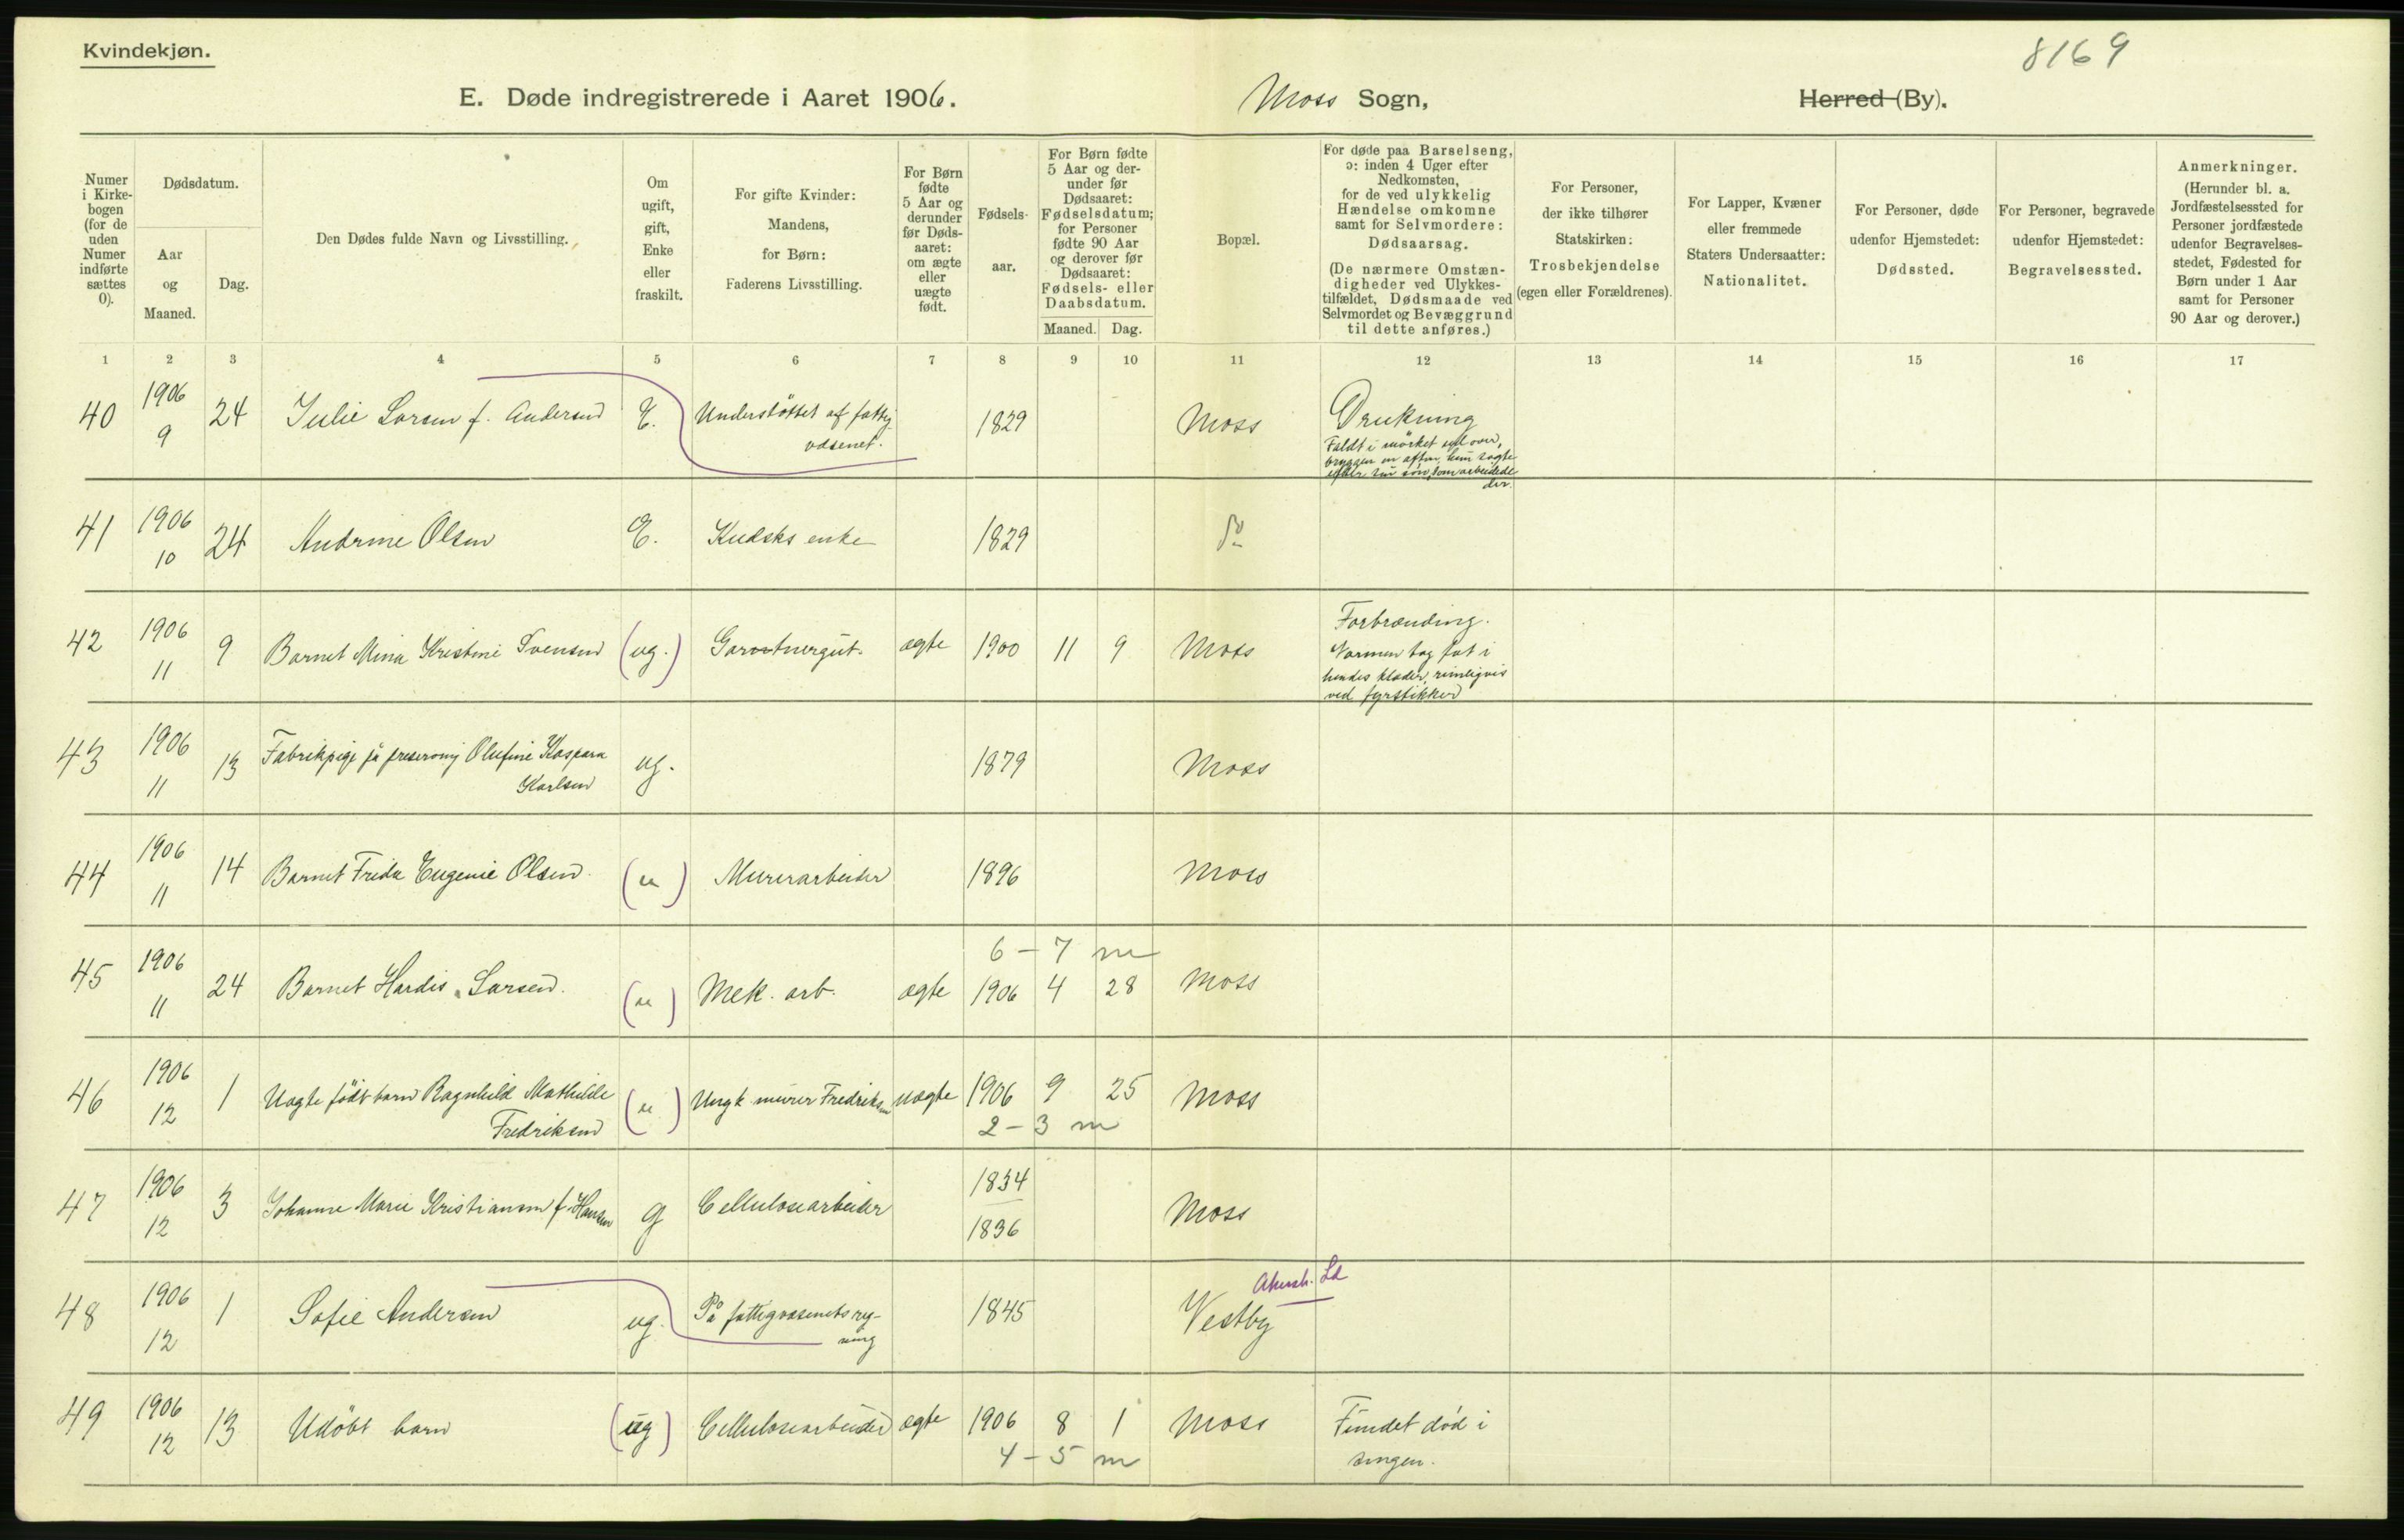 Kvindekjøn.
8169
E. Døde indregistrerede i Aaret 1906. Moss Sogn, Herred (By).
Numer i Kirkebogen (for de uden Numer indførte sættes 0).
Dødsdatum.
Aar og Maaned.
Dag.
Den Dødes fulde Navn og Livsstilling.
Om ugift, gift, Enke eller fraskilt.
For gifte Kvinder: Mandens, for Børn: Faderens Livsstilling.
For Børn fødte 5 Aar og derunder før Dødsaaret: om ægte eller uægte født.
Fødselsaar.
For Børn fødte 5 Aar og derunder før Dødsaaret: Fødselsdatum; for Personer fødte 90 Aar og derover før Dødsaaret: Fødsels- eller Daabsdatum.
Maaned. Dag.
Bopæl.
For døde paa Barselseng, ɔ: inden 4 Uger efter Nedkomsten, for de ved ulykkelig Hændelse omkomne samt for Selvmordere: Dødsaarsag.
(De nærmere Omstændigheder ved Ulykkestilfældet, Dødsmaade ved Selvmordet og Bevæggrund til dette anføres.)
For Personer, der ikke tilhører Statskirken: Trosbekjendelse (egen eller Forældrenes).
For Lapper, Kvæner eller fremmede Staters Undersaatter: Nationalitet.
For Personer, døde udenfor Hjemstedet: Dødssted.
For Personer, begravede udenfor Hjemstedet: Begravelsessted.
Anmerkninger.
(Herunder bl. a. Jordfæstelsessted for Personer jordfæstede udenfor Begravelsesstedet, Fødested for Børn under 1 Aar samt for Personer 90 Aar og derover.)
1 2 3 4 5 6 7 8 9 10 11 12 13 14 15 16 17
40 1906 9 24 Julie Larsen f. Andersen E. Understöttet af fattigvæsenet. 1829 Moss Drukning
Faldt i mörket ud over
bryggen en aften, hun søgte
efter sin sön, som arbeidede
der.
41 1906 10 24 Andrine Olsen E. Kudsks enke 1829 Do
42 1906 11 9 Barnet Mina Kristine Svensen (ug.) Gartnergut. ægte 1900 11 9 Moss Forbrænding.
Varmen tog fat i
hendes klæder, rimeligvis
ved fyrstikker
43 1906 11 13 Fabrikpige på preserving Olufine Kaspara
Karlsen ug. 1879 Moss
44 1906 11 14 Barnet Frida Eugenie Olsen. (") Murerarbeider 1896 Moss
6 – 7 m
45 1906 11 24 Barnet Hardis Larsen. (") Mek. arb. ægte 1906 4 28 Moss
46 1906 12 1 Uægte födt barn Ragnhild Mathilde
Fredriksen (") Ungk. murer Fredriksen uægte 1906 9 25 Moss
2 – 3 m
47 1906 12 3 Johanne Marie Kristiansen f. Hansen g Cellulosearbeider 1834
1836 Moss
Akersh. Ld
48 1906 12 1 Sofie Andersen ug. På fattigvæsenets regning 1845 Vestby
49 1906 12 13 Udöbt barn (ug) Cellulosearbeider ægte 1906 8 1 Moss Fundet död i
sengen.
4 – 5 m